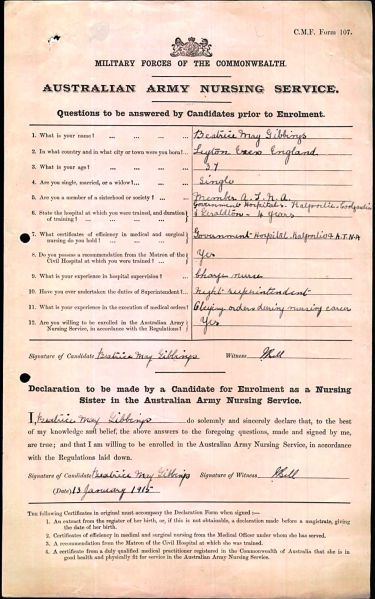 C.M.F. Form 107.
MILITARY FORCES OF THE COMMONWEALTH.
AUSTRALIAN ARMY NURSING SERVICE.
Questions to be answered by Candidates prior to Enrolment.
1. What is your name? ... ... ... ... Beatrice May Gibbings
2. In what country and in what city or town were you born? ... Leyton Essex England
3. What is your age? ... ... ... ... 37
4. Are you single, married, or a widow? ... ... ... Single
5. Are you a member of a sisterhood or society? ... ... Member A.T.N.A.
6. State the hospital at which you were trained, and duration of training? ... Government Hospitals Kalgoorlie Coolgardie & Geraldton - 4 years
7. What certificates of efficiency in medical and surgical nursing do you hold? ... Government Hospital Kalgoorlie & A.T.N.A
8. Do you possess a recommendation from the Matron of the Civil Hospital at which you were trained? ... Yes
9. What is your experience in hospital supervision? ... Charge nurse
10. Have you ever undertaken the duties of Superintendent? ... Night superintendent
11. What is your experience in the execution of medical orders? Obeying orders during nursing career
12. Are you willing to be enrolled in the Australian Army Nursing Service, in accordance with the Regulations? ... Yes
Signature of Candidate Beatrice May Gibbings Witness
Declaration to be made by a Candidate for Enrolment as a Nursing
Sister in the Australian Army Nursing Service.
I, Beatrice May Gibbings do solemnly and sincerely declare that, to the best
of my knowledge and belief, the above answers to the foregoing questions, made and signed by me,
are true; and that I am willing to be enrolled in the Australian Army Nursing Service, in accordance
with the Regulations laid down.
Signature of Candidate Beatrice May Gibbings Signature of Witness
(Date) 13 January 1915
The following Certificates in original must accompany the Declaration Form when signed :—
1. An extract from the register of her birth, or, if this is not obtainable, a declaration made before a magistrate, giving
the date of her birth.
2. Certificates of efficiency in medical and surgical nursing from the Medical Officer under whom she has served.
3. A recommendation from the Matron of the Civil Hospital at which she was trained.
4. A certificate from a duly qualified medical practitioner registered in the Commonwealth of Australia that she is in
good health and physically fit for service in the Australian Army Nursing Service.